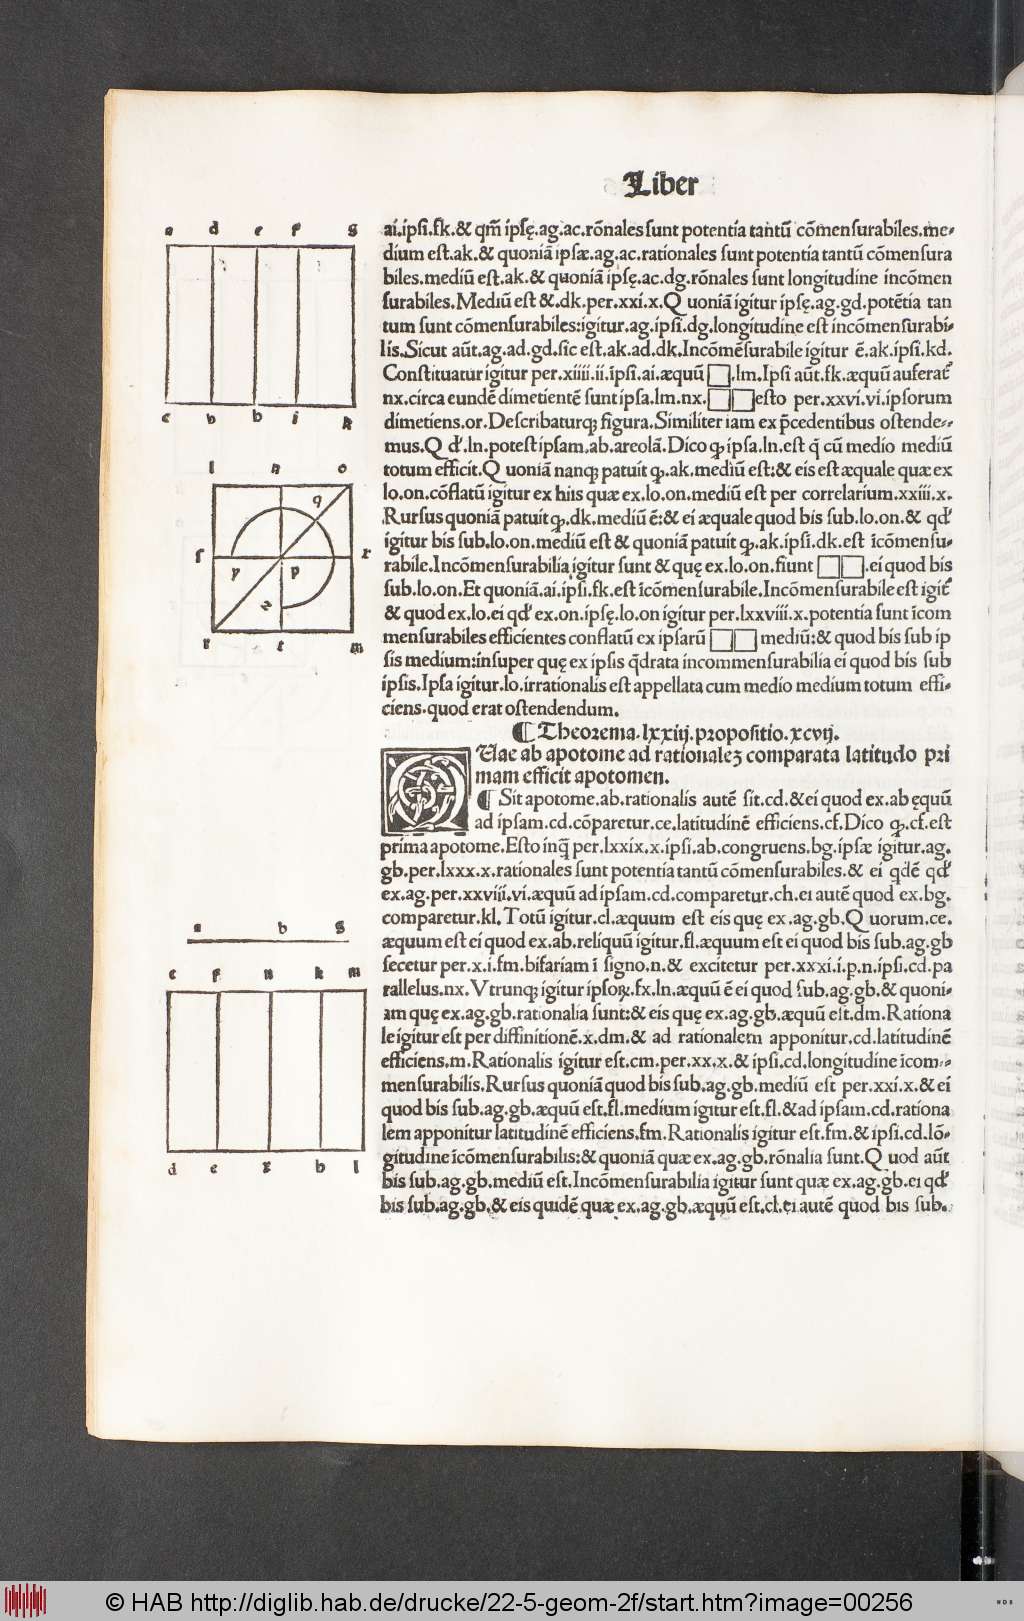 Liber
a d e f g
c v b i k
l n o
q
f y p r
z
r t m
a b g
c f n k m
d e x h l
ai.ipsi.fk.& qm̃ ipsę.ag.ac.rōnales sunt potentia tantū cōmensurabiles.me-
dium est.ak.& quoniā ipsæ.ag.ac.rationales sunt potentia tantū cōmensura
biles.mediū est.ak.& quoniā ipsę.ac.dg.rōnales sunt longitudine incōmen
surabiles.Mediū est &.dk.per.xxi.x.Q uoniā igitur ipsę.ag.gd.potētia tan
tum sunt cōmensurabiles:igitur.ag.ipsi.dg.longitudine est incōmensurabi-
lis.Sicut aūt.ag.ad.gd.sic est.ak.ad.dk.Incōmēsurabile igitur ē.ak.ipsi.kd.
Constituatur igitur per.xiiii.ii.ipsi.ai.æquū □.lm.Ipsi aūt.fk.æquū auferat᷑
nx.circa eundē dimetientē sunt ipsa.lm.nx.□□esto per.xxvi.vi.ipsorum
dimetiens.or.Describaturqꝫ figura.Similiter iam ex p̄cedentibus ostende-
mus.Q d᷑.ln.potest ipsam.ab.areolā.Dico ꝙ ipsa.ln.est q̄ cū medio mediū
totum efficit.Q uoniā nanqꝫ patuit ꝙ.ak.mediū est:& eis est æquale quæ ex
lo.on.cōflatū igitur ex hiis quæ ex.lo.on.mediū est per correlarium.xxiii.x.
Rursus quoniā patuit ꝙ.dk.mediū ē:& ei æquale quod bis sub.lo.on.& qd᷑
igitur bis sub.lo.on.mediū est & quoniā patuit ꝙ.ak.ipsi.dk.est īcōmensu-
rabile.Incōmensurabilia igitur sunt & quę ex.lo.on.fiunt □□.ei quod bis
sub.lo.on.Et quoniā.ai.ipsi.fk.est īcōmensurabile.Incōmensurabile est igit᷑
& quod ex.lo.ei qd᷑ ex.on.ipsę.lo.on igitur per.lxxviii.x.potentia sunt īcom
mensurabiles efficientes conflatū ex ipsarū □□ mediū:& quod bis sub ip
sis medium:insuper quę ex ipsis q̄drata incommensurabilia ei quod bis sub
ipsis.Ipsa igitur.lo.irrationalis est appellata cum medio medium totum effi-
ciens.quod erat ostendendum.
¶ Theorema.lxxiij.propositio.xcvij.
QVae ab apotome ad rationaleꝫ comparata latitudo pri
mam efficit apotomen.
¶ Sit apotome.ab.rationalis autē sit.cd.&ei quod ex.ab ęquū
ad ipsam.cd.cōparetur.ce.latitudinē efficiens.cf.Dico ꝙ.cf.est
prima apotome.Esto inq̄ per.lxxix.x.ipsi.ab.congruens.bg.ipsæ igitur.ag.
gb.per.lxxx.x.rationales sunt potentia tantū cōmensurabiles.& ei qdē qd᷑
ex.ag.per.xxviii.vi.æquū ad ipsam.cd.comparetur.ch.ei autē quod ex.bg.
comparetur.kl.Totū igitur.cl.æquum est eis quę ex.ag.gb.Q uorum.ce.
æquum est ei quod ex.ab.reliquū igitur.fl.æquum est ei quod bis sub.ag.gb
secetur per.x.i.fm.bifariam ī signo.n.& excitetur per.xxxi.i.p.n.ipsi.cd.pa
rallelus.nx.Vtrunqꝫ igitur ipsoꝝ.fx.ln.æquū ē ei quod sub.ag.gb.& quoni-
am quę ex.ag.gb.rationalia sunt:& eis quę ex.ag.gb.æquū est.dm.Rationa
le igitur est per diffinitionē.x.dm.& ad rationalem apponitur.cd.latitudinē
efficiens.m.Rationalis igitur est.cm.per.xx.x.& ipsi.cd.longitudine īcom-
mensurabilis.Rursus quoniā quod bis sub.ag.gb.mediū est per.xxi.x.& ei
quod bis sub.ag.gb.æquū est.fl.medium igitur est.fl.&ad ipsam.cd.rationa
lem apponitur latitudinē efficiens.fm.Rationalis igitur est.fm.& ipsi.cd.lō-
gitudine īcōmensurabilis:& quoniā quæ ex.ag.gb.rōnalia sunt.Q uod aūt
bis sub.ag.gb.mediū est.Incōmensurabilia igitur sunt quæ ex.ag.gb.ei qd᷑
bis sub.ag.gb.& eis quidē quæ ex.ag.gb.æquū est.cl.ei autē quod bis sub.
© HAB http://diglib.hab.de/drucke/22-5-geom-2f/start.htm?image=00256